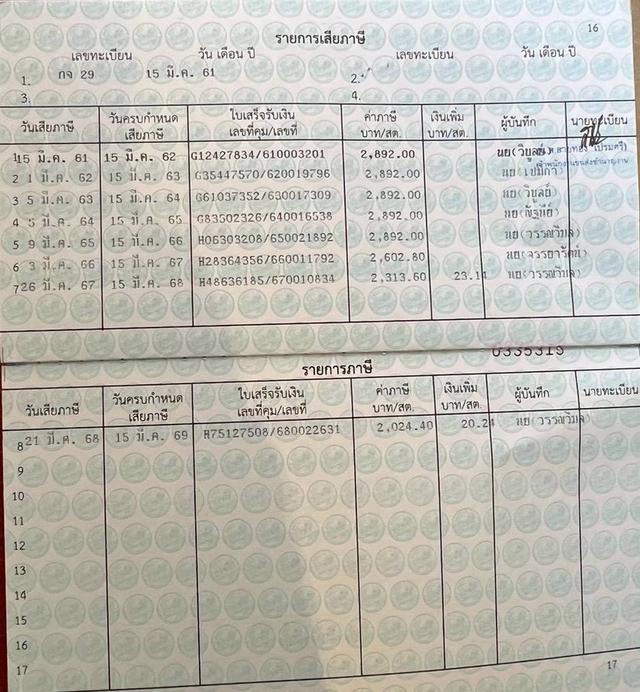 16
รายการเสียภาษี
เลขทะเบียน วัน เดือน ปี เลขทะเบียน วัน เดือน ปี
1. กจ 29 15 มี.ค. 61 2.
3. 4.
วันเสียภาษี วันครบกำหนด ใบเสร็จรับเงิน ค่าภาษี เงินเพิ่ม ผู้บันทึก นายทะเบียน
เสียภาษี เลขที่คุม/เลขที่ บาท/สต. บาท/สต.
1 15 มี.ค. 61 15 มี.ค. 62 G12427834/610003201 2,892.00 นย(วิบูลย์)
2 1 มี.ค. 62 15 มี.ค. 63 G35447570/620019796 2,892.00 นย(เปมิกา)
3 5 มี.ค. 63 15 มี.ค. 64 G61037352/630017309 2,892.00 นย(วิบูลย์)
4 5 มี.ค. 64 15 มี.ค. 65 G83502326/640016538 2,892.00
5 9 มี.ค. 65 15 มี.ค. 66 H06303208/650021892 2,892.00 นย(วรรณวิมล)
6 3 มี.ค. 66 15 มี.ค. 67 H28364356/660011792 2,602.80 นย(จรรยารัตน์)
7 26 มี.ค. 67 15 มี.ค. 68 H48636185/670010834 2,313.60 23.14 นย(วรรณวิมล)
0335319
รายการภาษี
วันเสียภาษี วันครบกำหนด ใบเสร็จรับเงิน ค่าภาษี เงินเพิ่ม ผู้บันทึก นายทะเบียน
เสียภาษี เลขที่คุม/เลขที่ บาท/สต. บาท/สต.
8 21 มี.ค. 68 15 มี.ค. 69 H75127508/680022631 2,024.40 20.24 นย(วรรณวิมล)
9
10
11
12
13
14
15
16
17
17